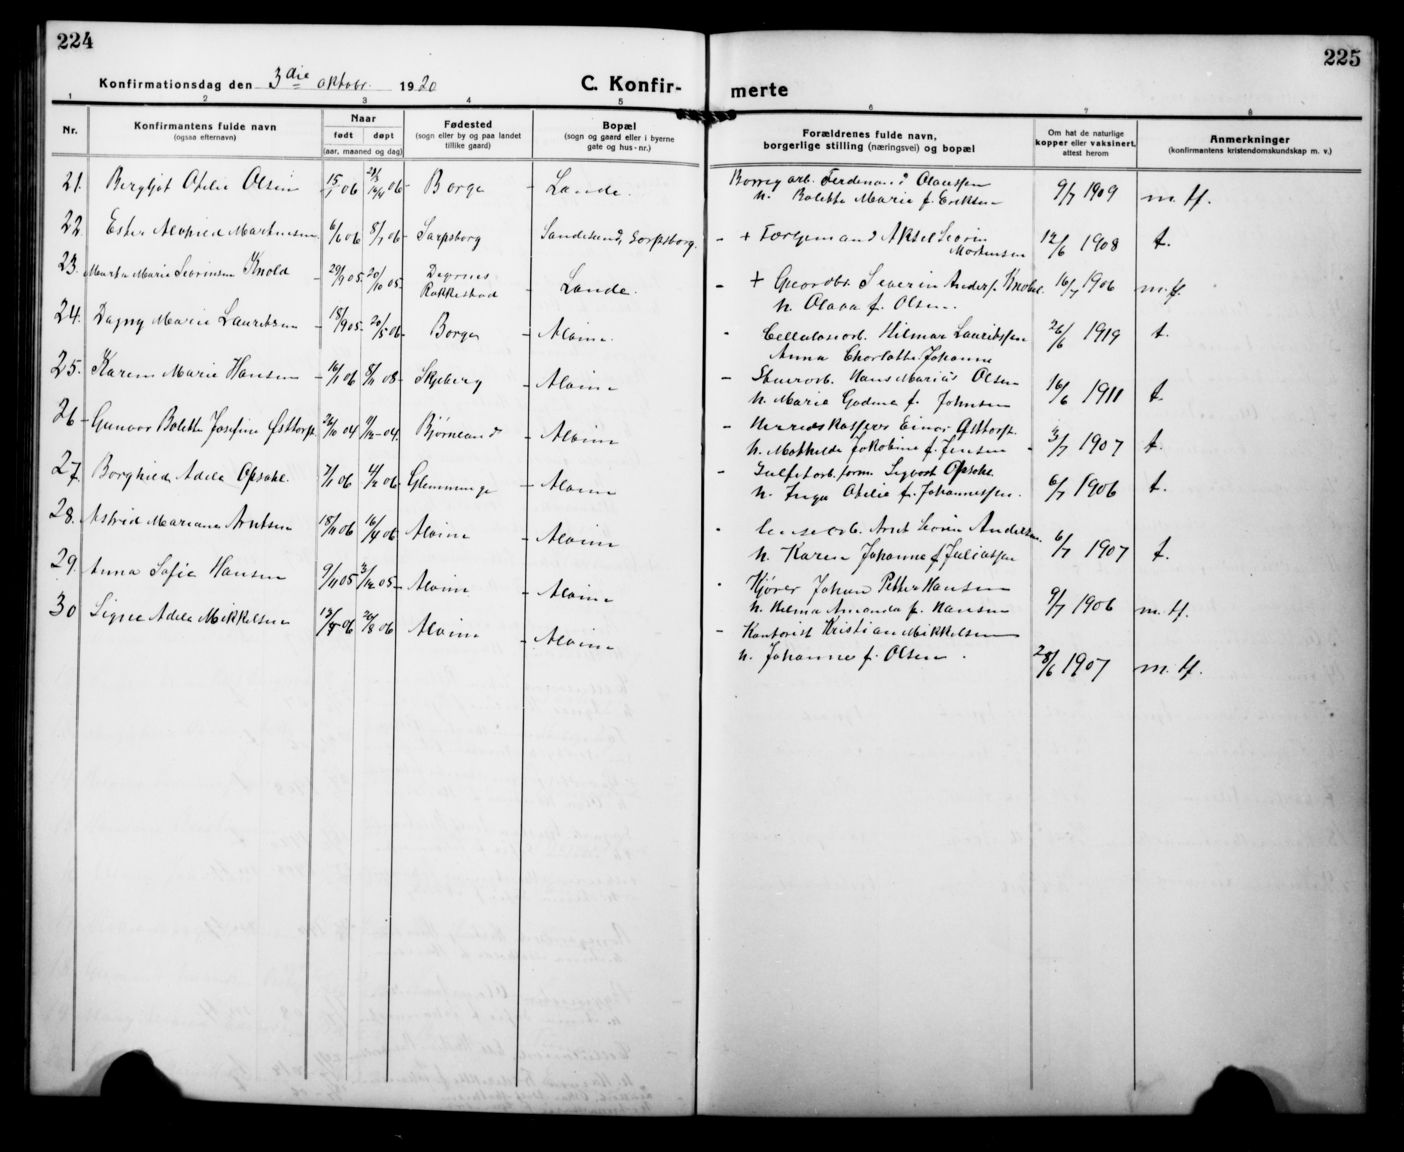 224
225
Konfirmationsdag den 3die oktobr. 1920
C. Konfir-
merte
1 2 3 4 5 6 7 8
Nr.
Konfirmantens fulde navn
(ogsaa efternavn)
Naar
født døpt
(aar, maaned og dag)
Fødested
(sogn eller by og paa landet
tillike gaard)
Bopæl
(sogn og gaard eller i byerne
gate og hus-nr.)
Forældrenes fulde navn,
borgerlige stilling (næringsvei) og bopæl
Om hat de naturlige
kopper eller vaksinert,
attest herom
Anmerkninger
(konfirmantens kristendomskundskap m. v.)
21. Bergljot Otilie Olsen 15/1 06 06 Borge - Lande. Ferdinand Olaussen 9/7 1909 m.tf.
h. Bolette Marie f. Eriksen
22. Ester Martinsen 6/6 06 8/7 06 - Sarpsborg Sandesund, Sarpsborg. - + Aksel Severin 12/6 1908 t.
Mortensen
23. Marta Marie Severinsen Knold 29/9 05 20/10 05 Degernes
Rakkestad - Lande. - + Severin Anders. Knold 16/7 1906 m.tf.
h. Olava f. Olsen.
24. Dagny Marie Lauritsen - 18/9 05 20/5 06 Borge - Alvim. - Cellulosearb. Hilmar Lauritssen 26/6 1919 t.
Anna Charlotte Johanne
25. Karen Marie Hansen - 16/11 06 8/11 08 - Skjeberg - Alvim - Hans Marius Olsen 16/6 1911 t.
h. Marie Gadine f. Johnsen
26 - Gunvor Bolette Josefine Østtorp 26/10 04 04 - Bjørneland - Alvim - Einar Østtorp 3/7 1907 t.
h. Mathilde Jakobine f. Jensen -
27. Borghild Adele Opsahl. 7/1 06 4/2 06 - Glemminge - Alvim - Sulfitarb. form. Sigvart Opsahl 6/7 1906 t.
h. Inga Otilie f. Johannessen.
28. Astrid Mariane Arntsen 18/11 06 16/4 06 Alvim - Alvim - Arnt Severin Andersen 6/7 1907 t.
h. Karen Johanne f. Juliussen
29. Anna Sofie Hansen 9/11 05 3/12 05 - Alvim - Alvim - Kjører Johan Petter Hansen 9/7 1906 m.tf.
h. Helma Amanda f. Hansen
30 Signe Adele Mikkelsen 06 26/8 06 Alvim - Alvim - Kontorist Kristian Mikkelsen 28/6 1907 m.tf.
h. Johanne f. Olsen.